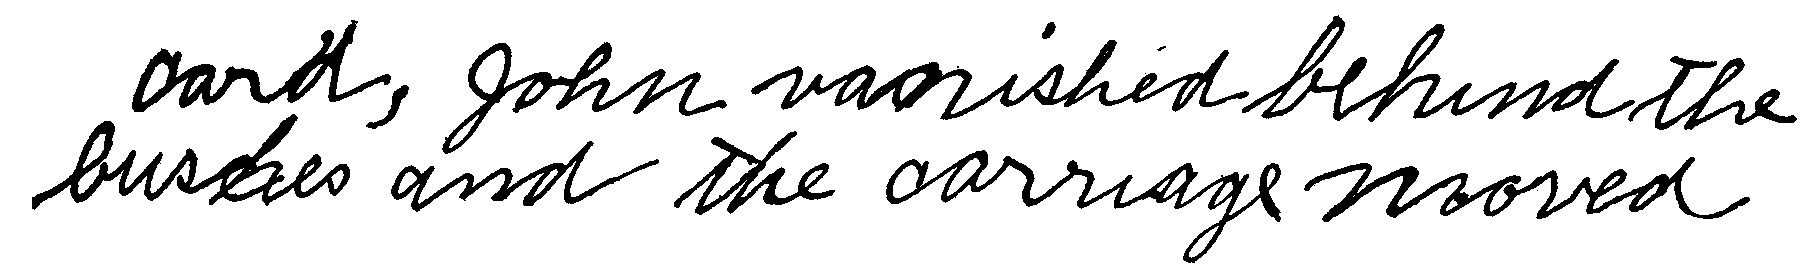 card, John vanished behind the
bushes and the carriage moved